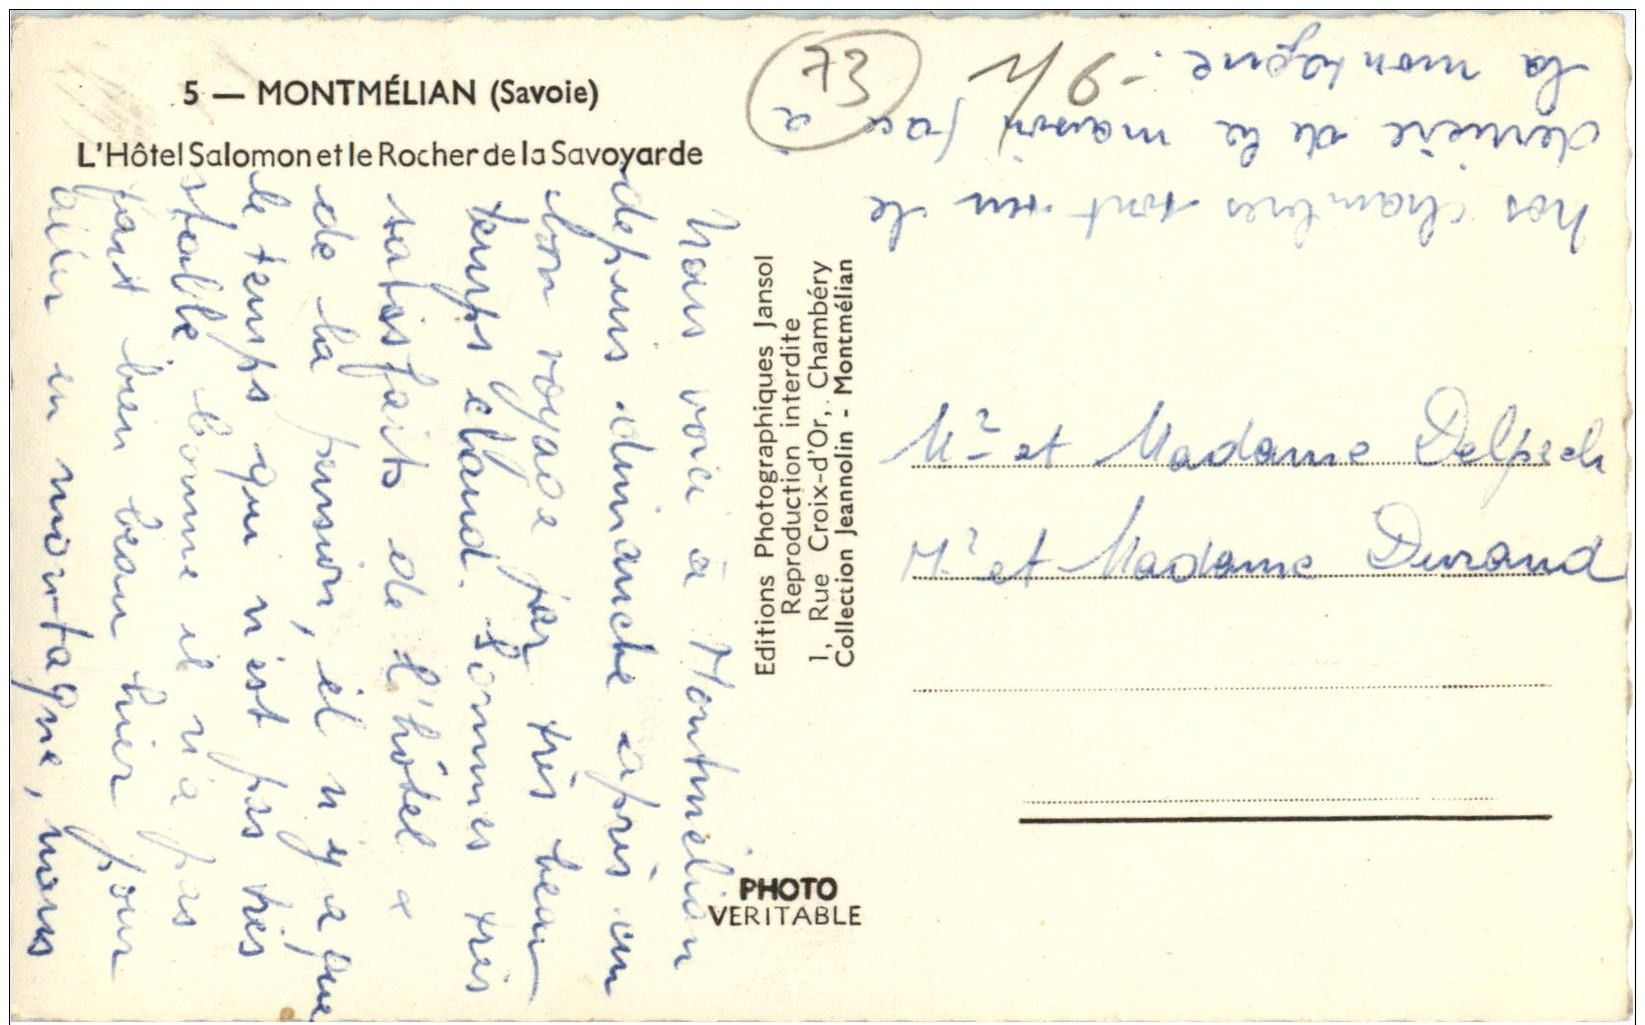 5 — MONTMÉLIAN (Savoie)
L'Hôtel Salomon et le Rocher de la Savoyarde
Nous voici à Montmélian
depuis dimanche après un
bon voyage par très beau
temps chaud. Sommes très
satisfaits de l'hôtel &
de la pension, il n'y a que
le temps qui n'est pas très
stable comme il n'a pas
fait bien beau hier pour
aller en montagne, nous
Editions Photographiques Jansol
Reproduction interdite
1, Rue Croix-d'Or, Chambéry
Collection Jeannolin - Montmélian
PHOTO
VERITABLE
73
nos chambres sont sur le
derrière de la maison face à
la montagne.
Mr et Madame Delpech
Mr et Madame Durand